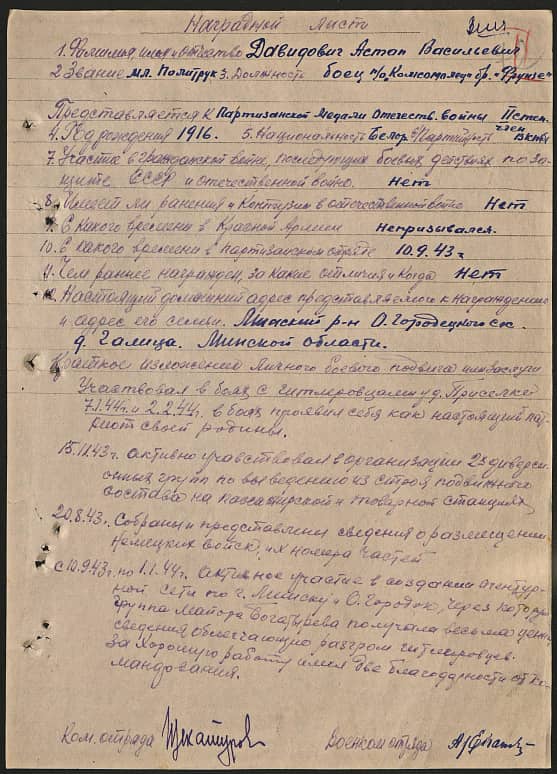 Наградной лист
1. Фамилия, имя и отчество Давидович Астап Васильевич
2 Звание мл. Политрук 3. Должность боец п/о "Комсомолец" бр. "Фрунзе"
Представляется к Партизанской Медали Отечеств. войны II степ.
4. Год рождения 1916. 5. Национальность Белор. 6/Партийность член ВКП(б)
7. Участие в гражданской войне, последующих боевых действиях по за-
щите СССР и отечественной войне. Нет
8. Имеет ли ранения и контузии в отечественной войне Нет
9. С какого времени в Красной Армии Непризывался.
10. С какого времени в партизанском отряде 10.9.43 г
11. Чем раннее награжден, за какие отличия и когда Нет
12. Настоящий домашний адрес представляемого к награждению
и адрес его семьи. Минский р-н О. Городецкого с/с.
д. Галица. Минской области.
Краткое изложение личного боевого подвига или заслуги
Участвовал в боях с гитлеровцами у д. Приселки
7.1.44г. и 2.2.44г. в боях проявил себя как настоящий пат-
риот своей родины.
15.11.43г. активно учавствовал в организации 2х диверси-
онных групп по выведению из строя подвижного
состава на пассажирской и товарной станциях,
20.8.43г. Собраны и представлены сведения о размещении
немецких войск, их номера частей
с 10.9.43г. по 1.1.44г. активное участие в создании агентур-
ной сети по г. Минску и О. Городок, через которую
группа Майора Богатырева получала весьма ценные
сведения облегчающие разгром гитлеровцев.
За хорошую работу имел две благодарности от Ко-
мандования.
Ком. отряда Военком отряда